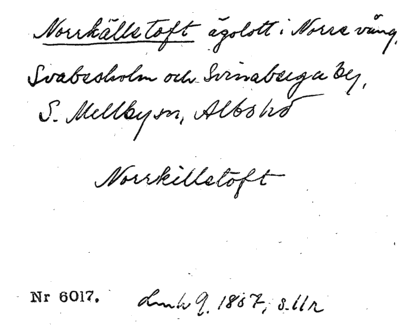 Norrkällstoft ägolott i Norre vång,
Svabesholm och Svinaberga by,
S. Mellby sn, Albo hd
Norrkillstoft
Nr 6017. Lmh 9. 1857, s. 11r